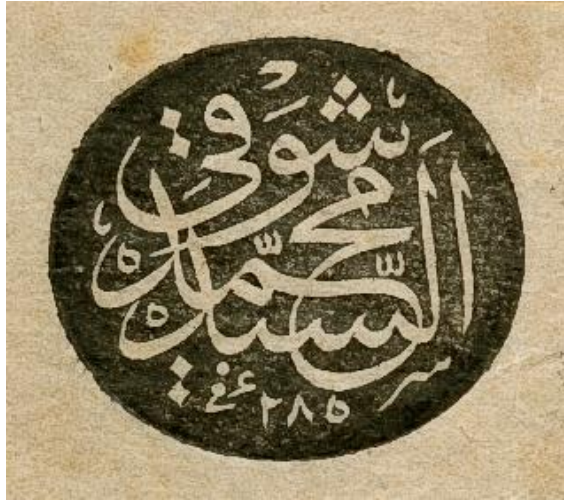 السَيِّد
محمّد
شَوقِي
٢٨٥